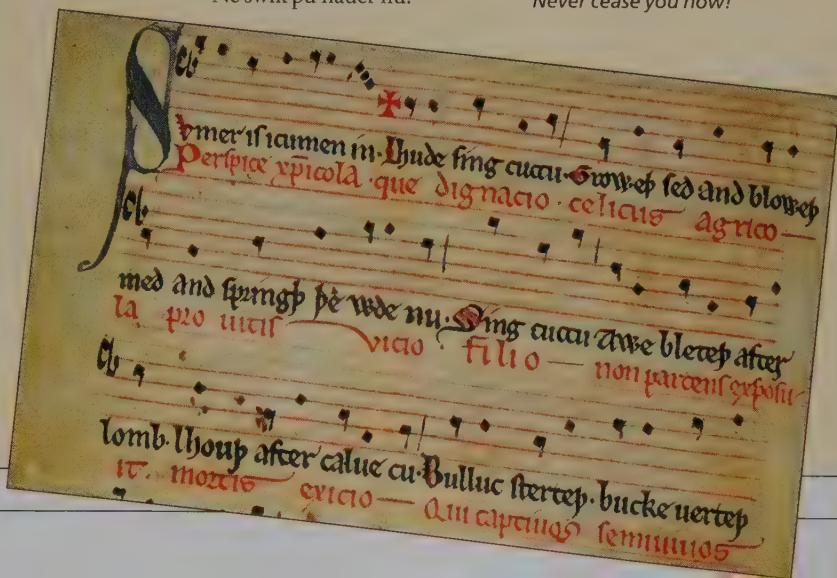 Ne swik þu nauer nu.
Never cease you now!
Svmer is icumen in. Lhude sing cuccu. Groweþ sed and bloweþ
Perspice xp̄icola. que dignacio. celicus agrico—
med and springþ þe wde nu. Sing cuccu Awe bleteþ after
la pro uitis vicio filio— non parcens exposu
lomb. lhouþ after calue cu. Bulluc sterteþ. bucke uerteþ
it. mortis exicio— Qui captiuos semiuiuos